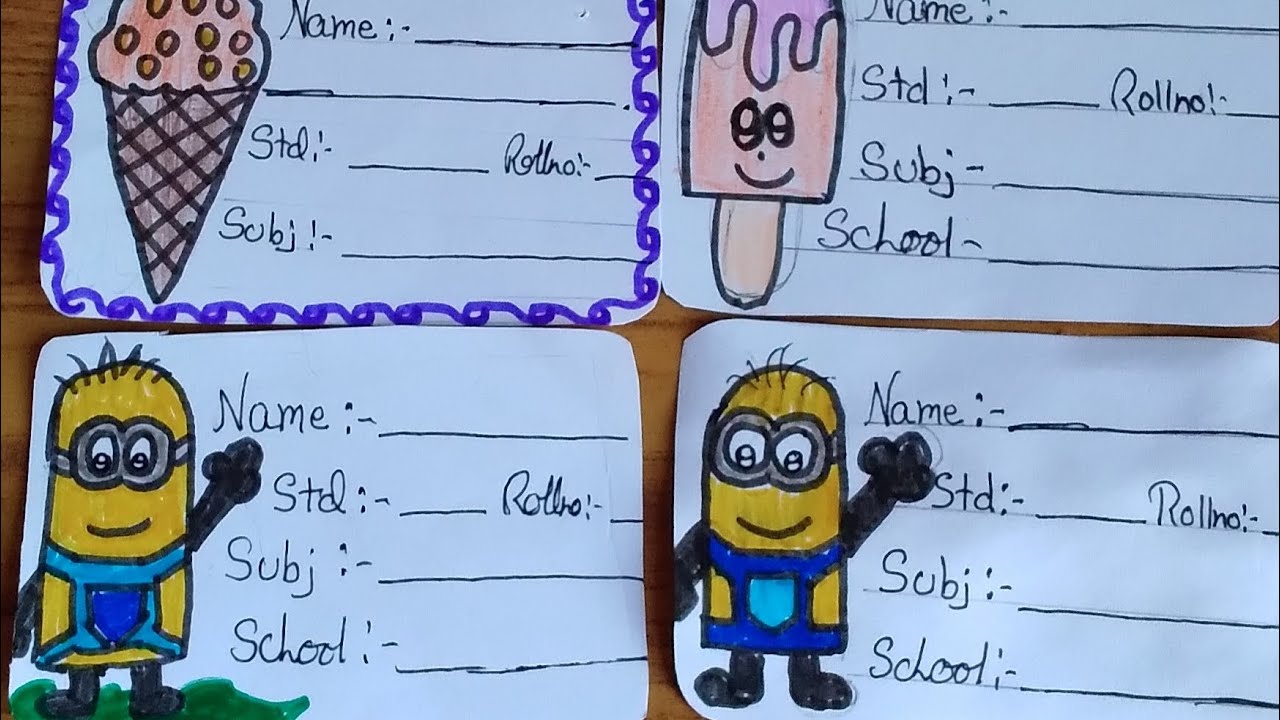 Name:-
Std:- Rollno:-
Subj:-
Name:-
Std:- Rollno:-
Subj-
School-
Name:-
Std:- Rollno:-
Subj:-
School:-
Name:-
Std:- Rollno:-
Subj:-
School:-